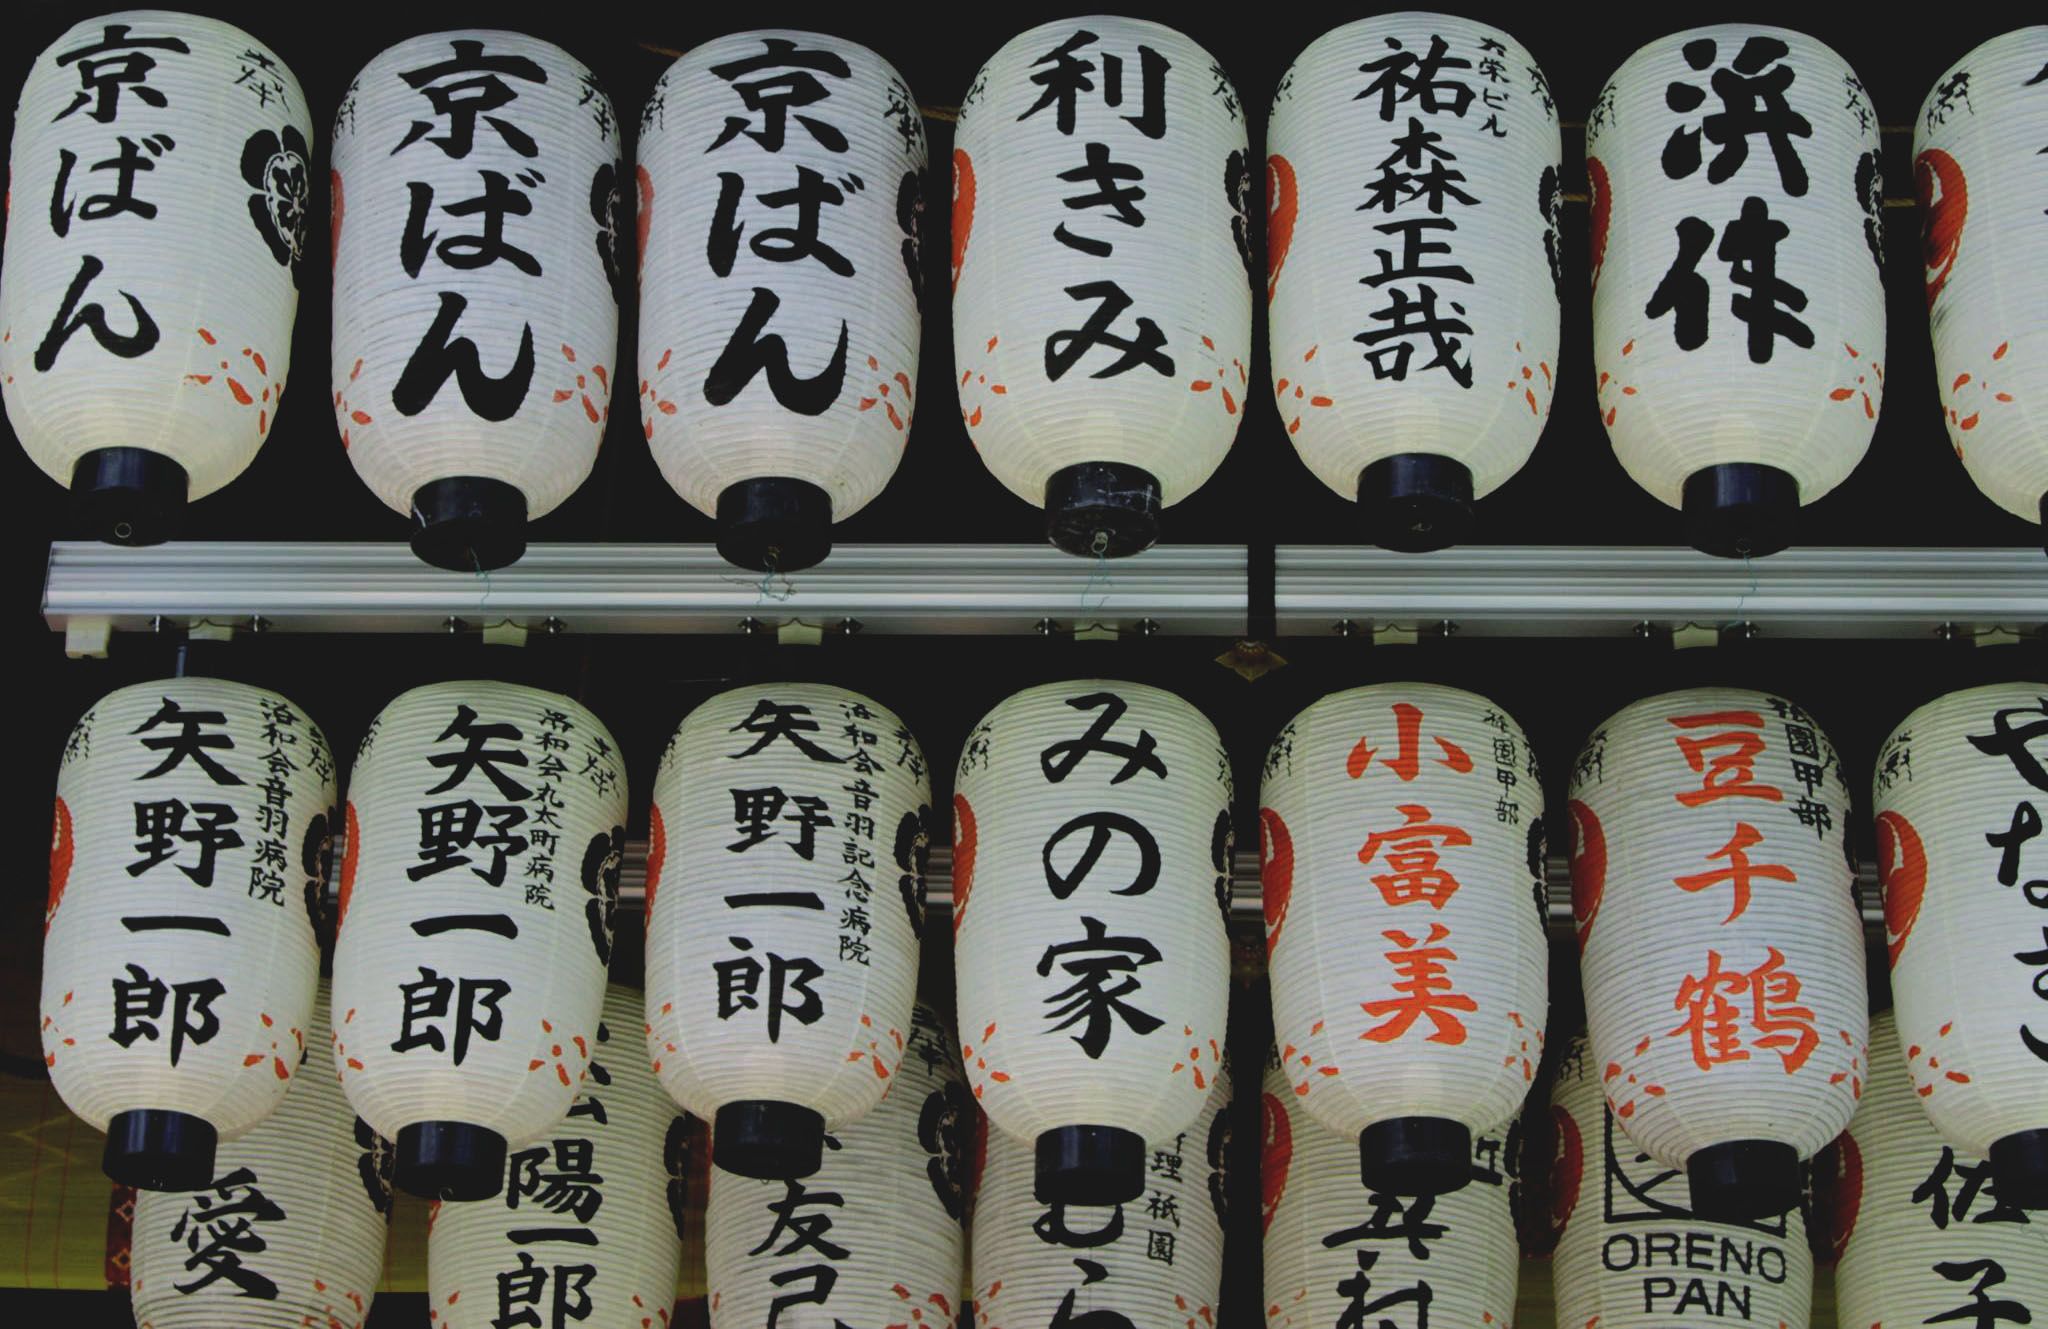 京ばん
京ばん
京ばん
利きみ
大栄ビル
祐森正哉
浜作
洛和会音羽病院
矢野一郎
洛和会丸太町病院
矢野一郎
洛和会音羽記念病院
矢野一郎
みの家
祇園甲部
小富美
祇園甲部
豆千鶴
愛
陽一郎
友己
理祇園
むら
村
ORENO
PAN
佐
子